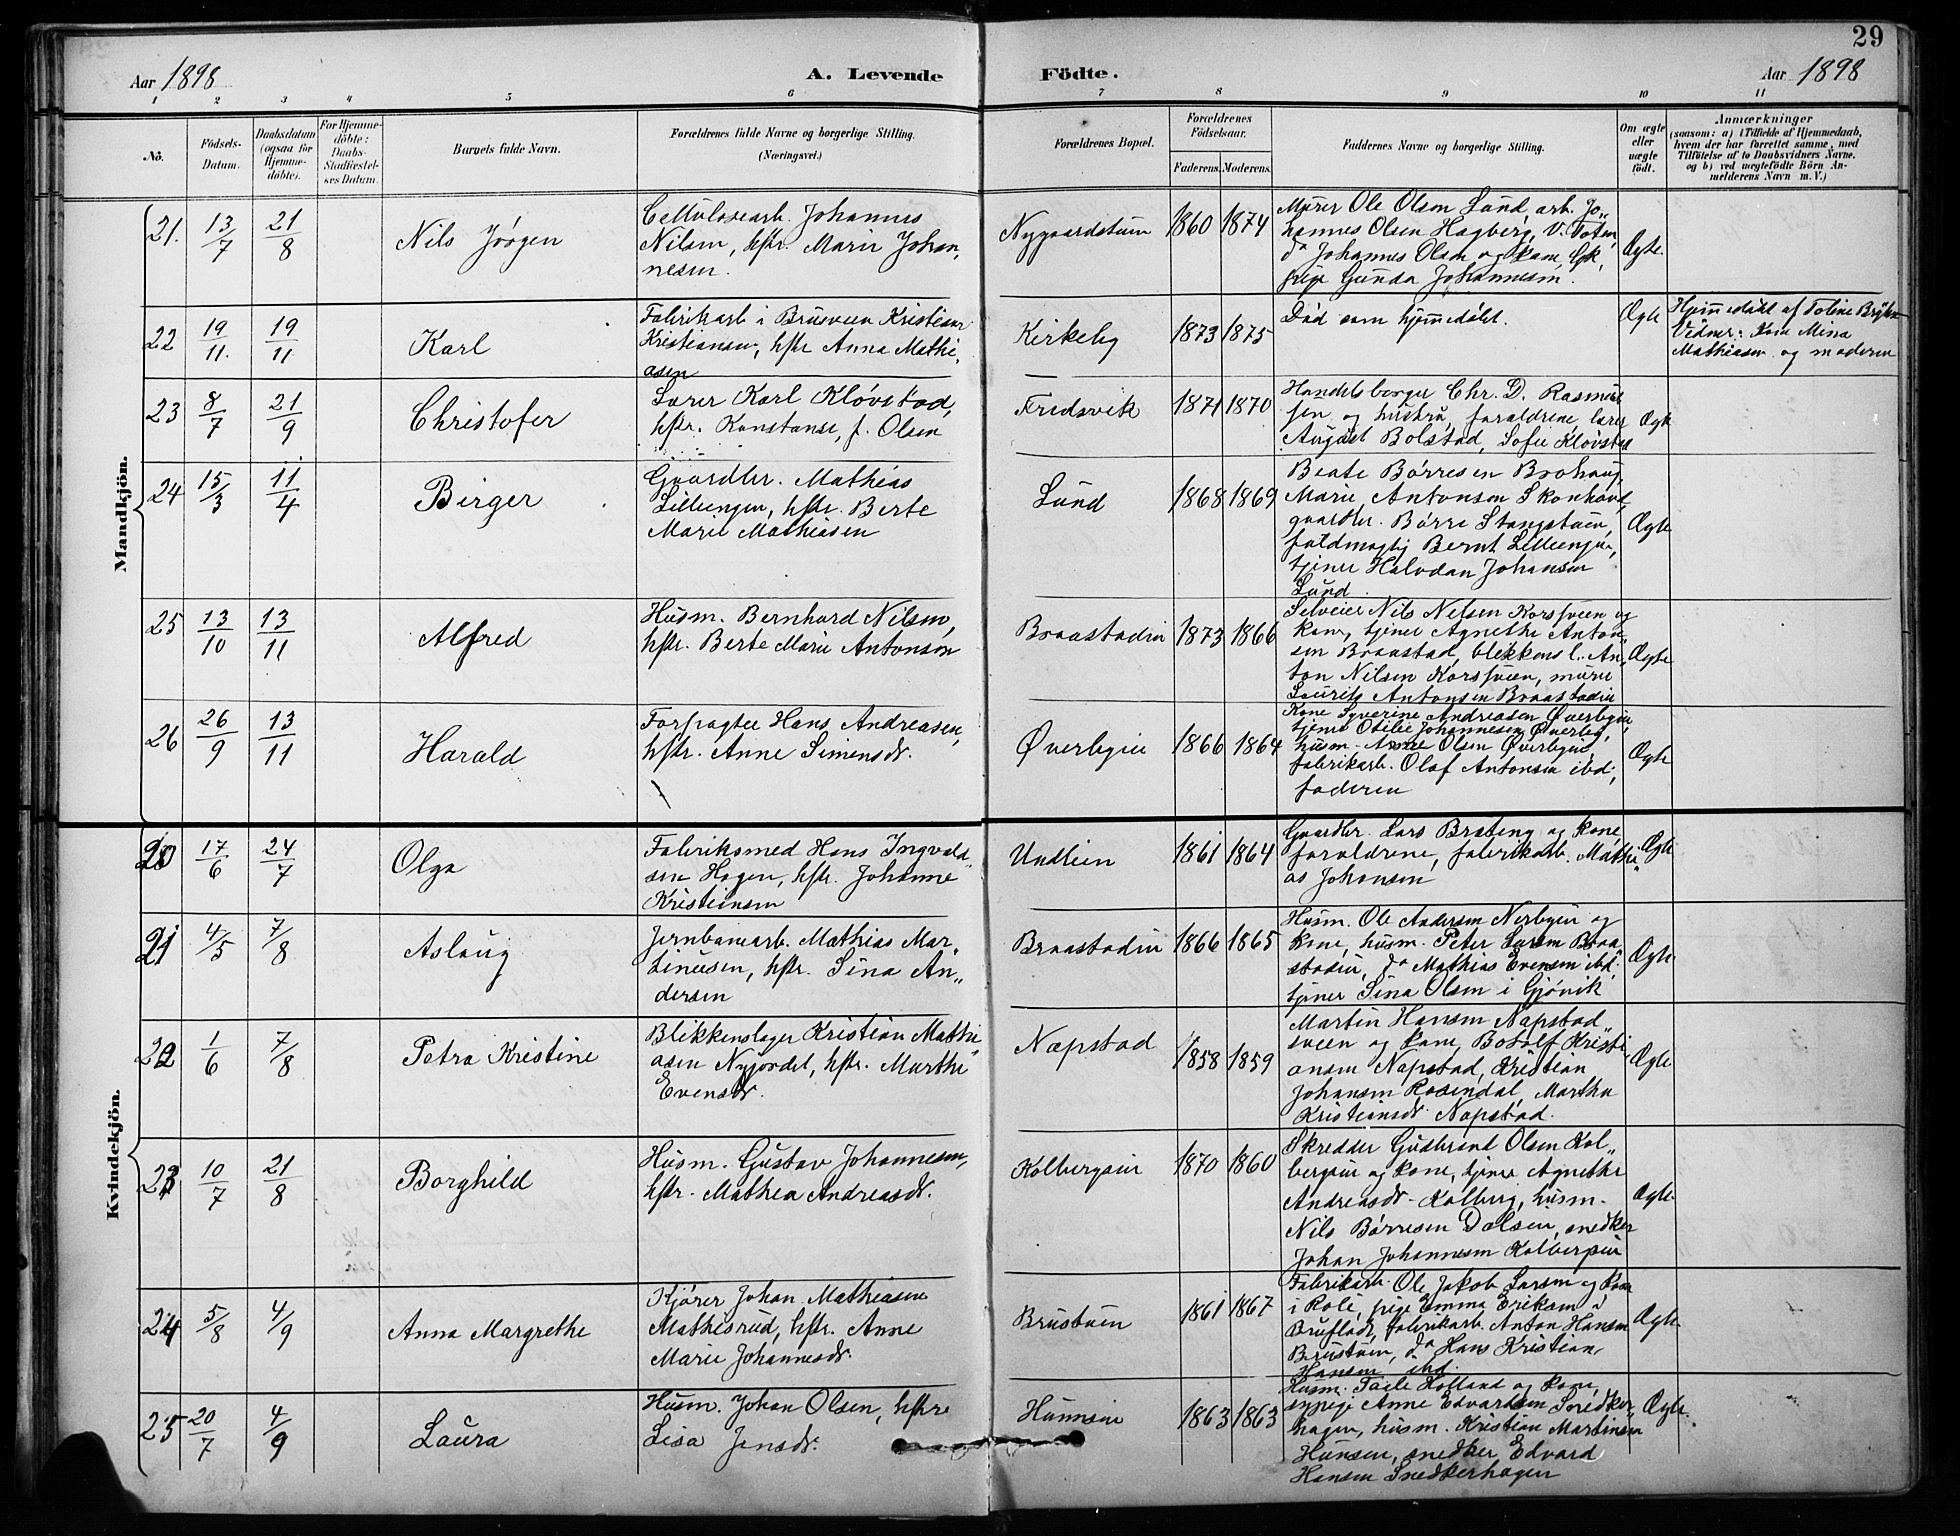 29
Aar 1898
A. Levende Födte.
Aar 1898
1 2 3 4 5 6 7 8 9 10 11
No.
Födsels-Datum.
Daabsdatum (ogsaa for Hjemme-döbte).
For Hjemme-döbte: Daabs-Stadfæstel-ses Datum.
Barnets fulde Navn.
Forældrenes fulde Navne og borgerlige Stilling.
(Næringsvei.)
Forældrenes Bopæl.
Forældrenes Födselsaar.
Faderens. Moderens.
Faddernes Navne og borgerlige Stilling.
Om ægte eller uægte födt.
Anmærkninger
(saasom: a) i Tilfælde af Hjemmedaab,
hvem der har forrettet samme, med
Tilföielse af to Daabsvidners Navne,
og b) ved uegtefödte Börn An-
melderens Navn m. V.)
Mandkjön.
21. 13/7 21/8
Nils Jörgen
Cellulosearb. Johannes
Nilsen, hstr. Marie Johan„
nesen.
Nygaardstuen 1860 1874
Murer Ole Olsen Lund, arb. Jo„
hannes Olsen Hagberg, V. Toten,
do Johannes Olsen og kone,
pige Gunda Johannesen.
Ægte.
22 19/11. 19/11
Karl
Fabrikarb i Brusveen Kristian
Kristiansen, hstr Anna Mathi„
asen
Kirkeby 1873 1875
Död som hjemmedöbt.
Ægte
Hjemmedöbt af Toline
Vidner: Kone Mina
Mathiasen og moderen
23 8/7 21/9
Christofer
Lærer Karl Klövstad,
hstr. Konstanse, f. Olsen
Fredsvik 1871 1870
Handelsborger Chr. D. Rasmus
sen og hustru, forældrene, lærer
August Bolstad, Sofie Klövstad
Ægte
24 15/3 11/4
Birger
Gaardbr. Mathias
Lilleengen, hstr. Berte
Marie Mathiasen
Lund 1868 1869
Beate Börresen Brohaug,
Marie Antonsen Skonhovd,
gaardbr. Börre Stangstuen,
fuldmægtig Bernt Lilleengen,
tjener Halvdan Johansen
Lund
Ægte
25 13/10 13/11
Alfred
Husm. Bernhard Nilsen,
hstr. Berte Marie Antonsen
Braastadeie 1873 1866
Selveier Nils Nilsen Korsveen og
kone, tjener Agnethe Anton„
sen Braastad, blikkensl. An„
ton Nilsen Korsveen, murer
Laurits Antonsen Braastadeie
Ægte
26 26/9 13/11
Harald
Forpagter Hans Andreasen,
hstr. Anne Simensdr.
Øverbyeie 1866 1864
Kone Syverine Andreasen Øverbyeie,
tjener Otilie Johannesen Øverby,
husm. Olsen Øverbyeie,
fabrikarb. Olaf Antonsen ibd.,
faderen
Ægte
Kvindekjön.
20 17/6 24/7
Olga
Fabriksmed Hans Ingvald„
sen Hagen, hstr. Johanne
Kristiansen
Undlien 1861 1864
Gaardbr. Lars Bräteng og kone,
forældrene, fabrikarb. Mathi„
as Johansen
Ægte
21 4/5 7/8
Aslaug
Jernbanearb. Mathias Mar„
tinusen, hstr. Sina An„
dersen
Braastadeie 1866 1865
Husm. Ole Andersen Nerbyeie og
kone, husm. Peter Larsen Braa„
stadeie, do Mathias Evensen ibd.
tjener Sina Olsen i Gjövik
Ægte
22 1/6 7/8
Petra Kristine
Blikkenslager Kristian Mathi„
asen Nyjordet, hstr. Marthe
Evensdr.
Næpstad 1858 1859
Martin Hansen Næpstad„
sveen og kone, Botolf Kristi„
ansen Næpstad, Kristian
Johansen Rosendal, Martha
Kristiansdr. Næpstad.
Ægte
23 10/7 21/8
Borghild
Husm. Gustav Johannesen,
hstr. Mathea Andreasdr.
Kolbergeie 1870 1860
Skredder Gudbrand Olsen Kol„
bergeie og kone, tjener Agnethe
Andreasdr. Kolberg, husm.
Nils Börresen Dalseie, snedker
Johan Johannesen Kolbergeie
Ægte
24 5/8 4/9
Anna Margrethe
Kjörer Johan Mathiasen
Mathisrud, hstr. Anne
Marie Johannesdr.
Brustuen 1861 1867
Fabrikarb. Ole Jakob Larsen og kone
i Roli, pige Emma Eriksen i
Bruflot, fabrikarb. Anton Hansen
Brustuen, do Hans Kristian
Hansen ibd.
Ægte
25 20/7 4/9
Laura
Husm. Johan Olsen, hstr
Lisa Jensdr.
Hunseie 1863 1863
Husm. Holland og kone,
sypige Anne Edvardsen Snedker„
hagen, husm. Kristian Martinsen
Hunseie, snedker Edvard
Hansen Snedkerhagen
Ægte.